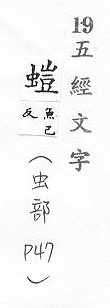 19五經文字
螘魚己反（虫部P47）